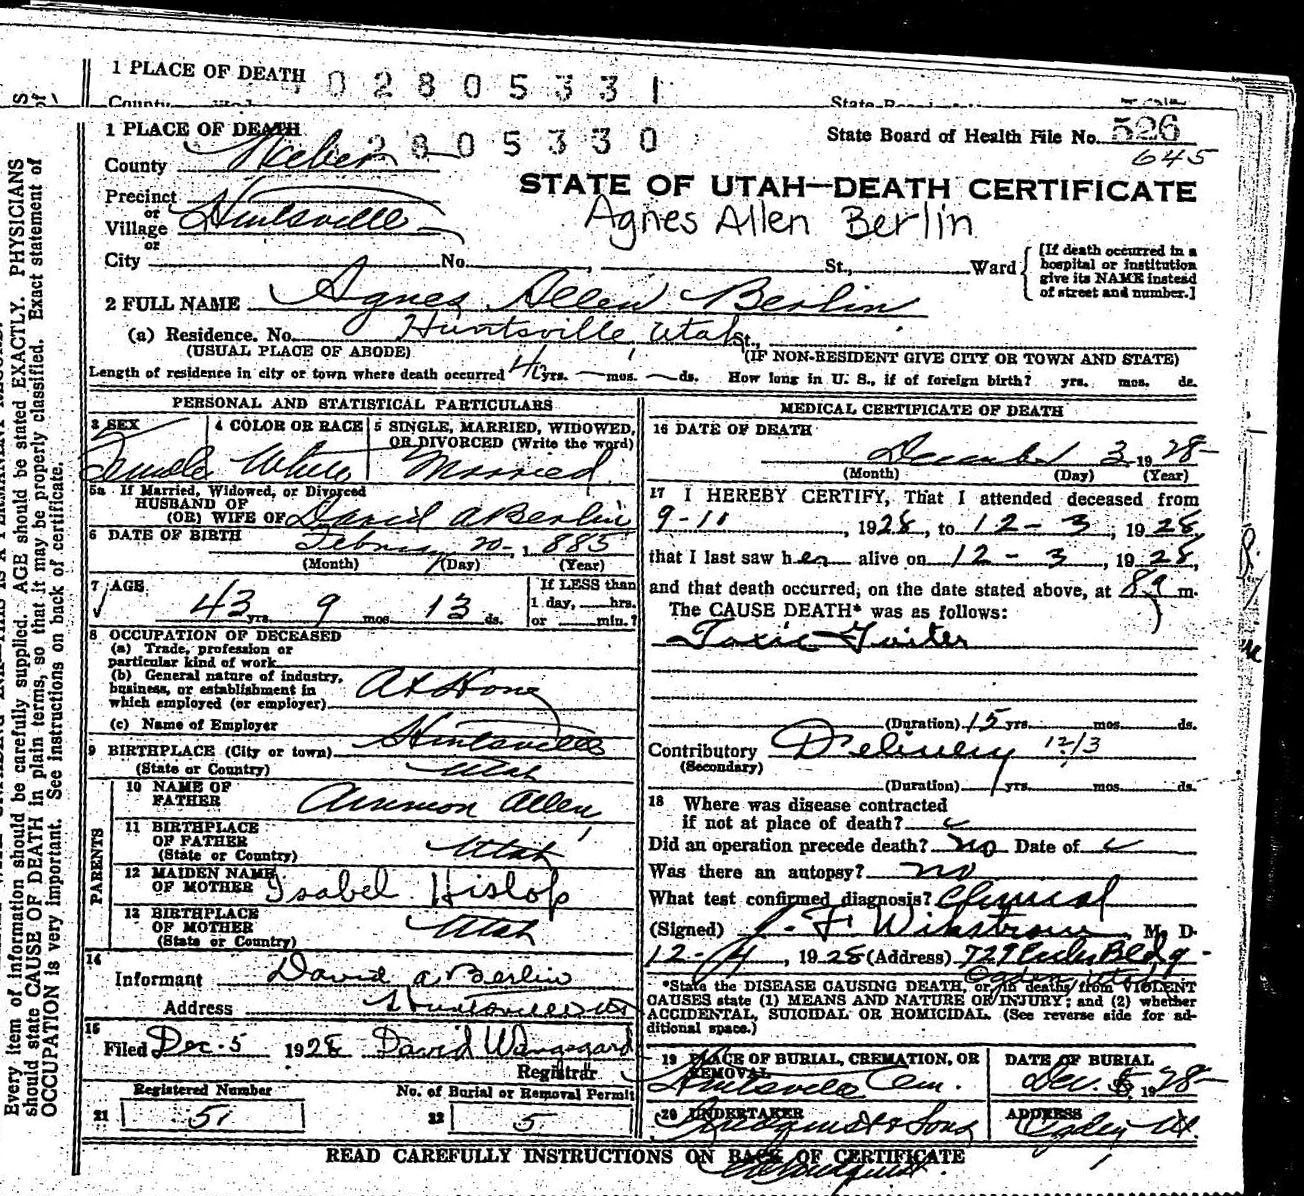 1 PLACE OF DEATH 0 2 8 0 5 3 3 1
County
1 PLACE OF DEATH 2 8 0 5 3 3 0
State Board of Health File No. 526
645
County Weber
STATE OF UTAH—DEATH CERTIFICATE
Agnes Allen Berlin
Precinct
or
Village
or
Huntsville
City No. St., Ward
[If death occurred in a
hospital or institution
give its NAME instead
of street and number.]
2 FULL NAME Agnes Allen Berlin
(a) Residence. No. Huntsville Utah St.,
(USUAL PLACE OF ABODE) (IF NON-RESIDENT GIVE CITY OR TOWN AND STATE)
Length of residence in city or town where death occurred yrs. — mos. — ds. How long in U. S., if of foreign birth? yrs. mos. ds.
PERSONAL AND STATISTICAL PARTICULARS
3 SEX Female
4 COLOR OR RACE White
5 SINGLE, MARRIED, WIDOWED,
OR DIVORCED (Write the word)
Married
5a If Married, Widowed, or Divorced
HUSBAND OF
(OR) WIFE OF David A Berlin
6 DATE OF BIRTH February 20 - 1885
(Month) (Day) (Year)
7 AGE 43 yrs. 9 mos. 13 ds.
If LESS than
1 day, hrs.
or min.?
8 OCCUPATION OF DECEASED
(a) Trade, profession or
particular kind of work
(b) General nature of industry,
business, or establishment in
which employed (or employer) At Home
(c) Name of Employer
9 BIRTHPLACE (City or town) Huntsville
(State or Country) Utah
PARENTS
10 NAME OF
FATHER Ammon Allen
11 BIRTHPLACE
OF FATHER
(State or Country) Utah
12 MAIDEN NAME
OF MOTHER Isabel Hislop
13 BIRTHPLACE
OF MOTHER
(State or Country) Utah
14
Informant David A Berlin
Address Huntsville Ut
15
Filed Dec-5 1928 David Wangsgard
Registrar
Registered Number
21 51
No. of Burial or Removal Permit
22 5
MEDICAL CERTIFICATE OF DEATH
16 DATE OF DEATH
December 3 1928
(Month) (Day) (Year)
17 I HEREBY CERTIFY, That I attended deceased from
9-11, 1928, to 12-3, 1928
that I last saw her alive on 12-3, 1928,
and that death occurred, on the date stated above, at 8 a m.
The CAUSE DEATH* was as follows:
Toxic Goiter
(Duration) 15 yrs. mos. ds.
Contributory Delivery 12/3
(Secondary)
(Duration) yrs. mos. ds.
18 Where was disease contracted
if not at place of death?
Did an operation precede death? no Date of
Was there an autopsy? no
What test confirmed diagnosis? Clinical
(Signed) J. F. Wikstrom, M. D.
12-4, 1928 (Address) 729 Eccles Bldg -
Ogden Utah
*State the DISEASE CAUSING DEATH, or, in deaths from VIOLENT
CAUSES state (1) MEANS AND NATURE OF INJURY; and (2) whether
ACCIDENTAL, SUICIDAL OR HOMICIDAL. (See reverse side for ad-
ditional space.)
19 PLACE OF BURIAL, CREMATION, OR
REMOVAL
Huntsville Cem.
DATE OF BURIAL
Dec. 5 1928
20 UNDERTAKER
& Sons
ADDRESS
Ogden Ut.
READ CAREFULLY INSTRUCTIONS ON BACK OF CERTIFICATE
Every item of information should be carefully supplied. AGE should be stated EXACTLY. PHYSICIANS
should state CAUSE OF DEATH in plain terms, so that it may be properly classified. Exact statement of
OCCUPATION is very important. See instructions on back of certificate.